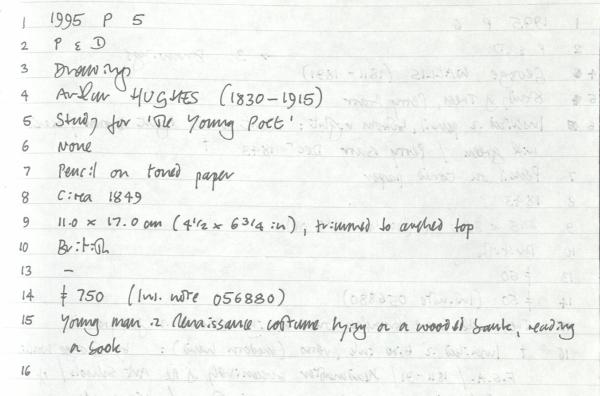 1 1995 P 5
2 P & D
3 Drawings
4 Arthur HUGHES (1830-1915)
5 Study for 'The Young Poet'
6 None
7 Pencil on toned paper
8 Circa 1849
9 11.0 x 17.0 cm (4 1/2 x 6 3/4 in), trimmed to arched top
10 British
13 -
14 £ 750 (Inv. note 056880)
15 Young man in Renaissance costume lying on a wooded bank, reading
a book
16